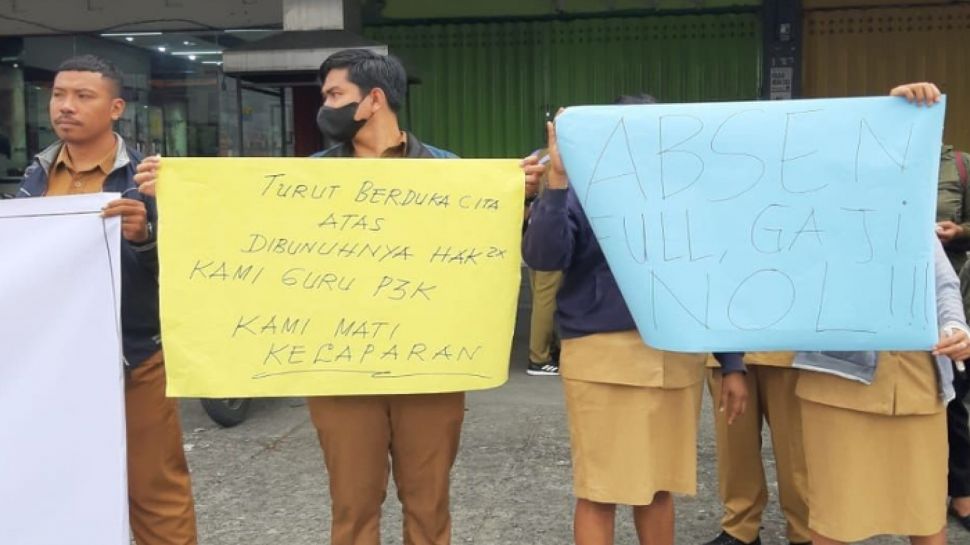 TURUT BERDUKA CITA
ATAS
DIBUNUHNYA HAK 2X
KAMI GURU P3K
KAMI MATI
KELAPARAN
ABSEN
FULL, GAJI
NOL!!!